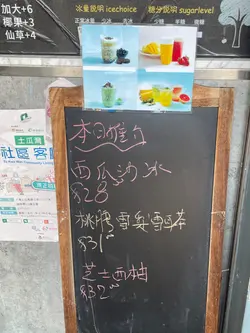 加大+6
椰果+3
仙草+4
冰量說明 icechoice
糖分說明 sugarlevel
正常冰量 少冰 走冰
少糖 半糖
本日推介
西瓜沙冰
$28
桃膠雪梨雪耳茶
$31
芝士西柚
$32
土瓜灣
社區客廳